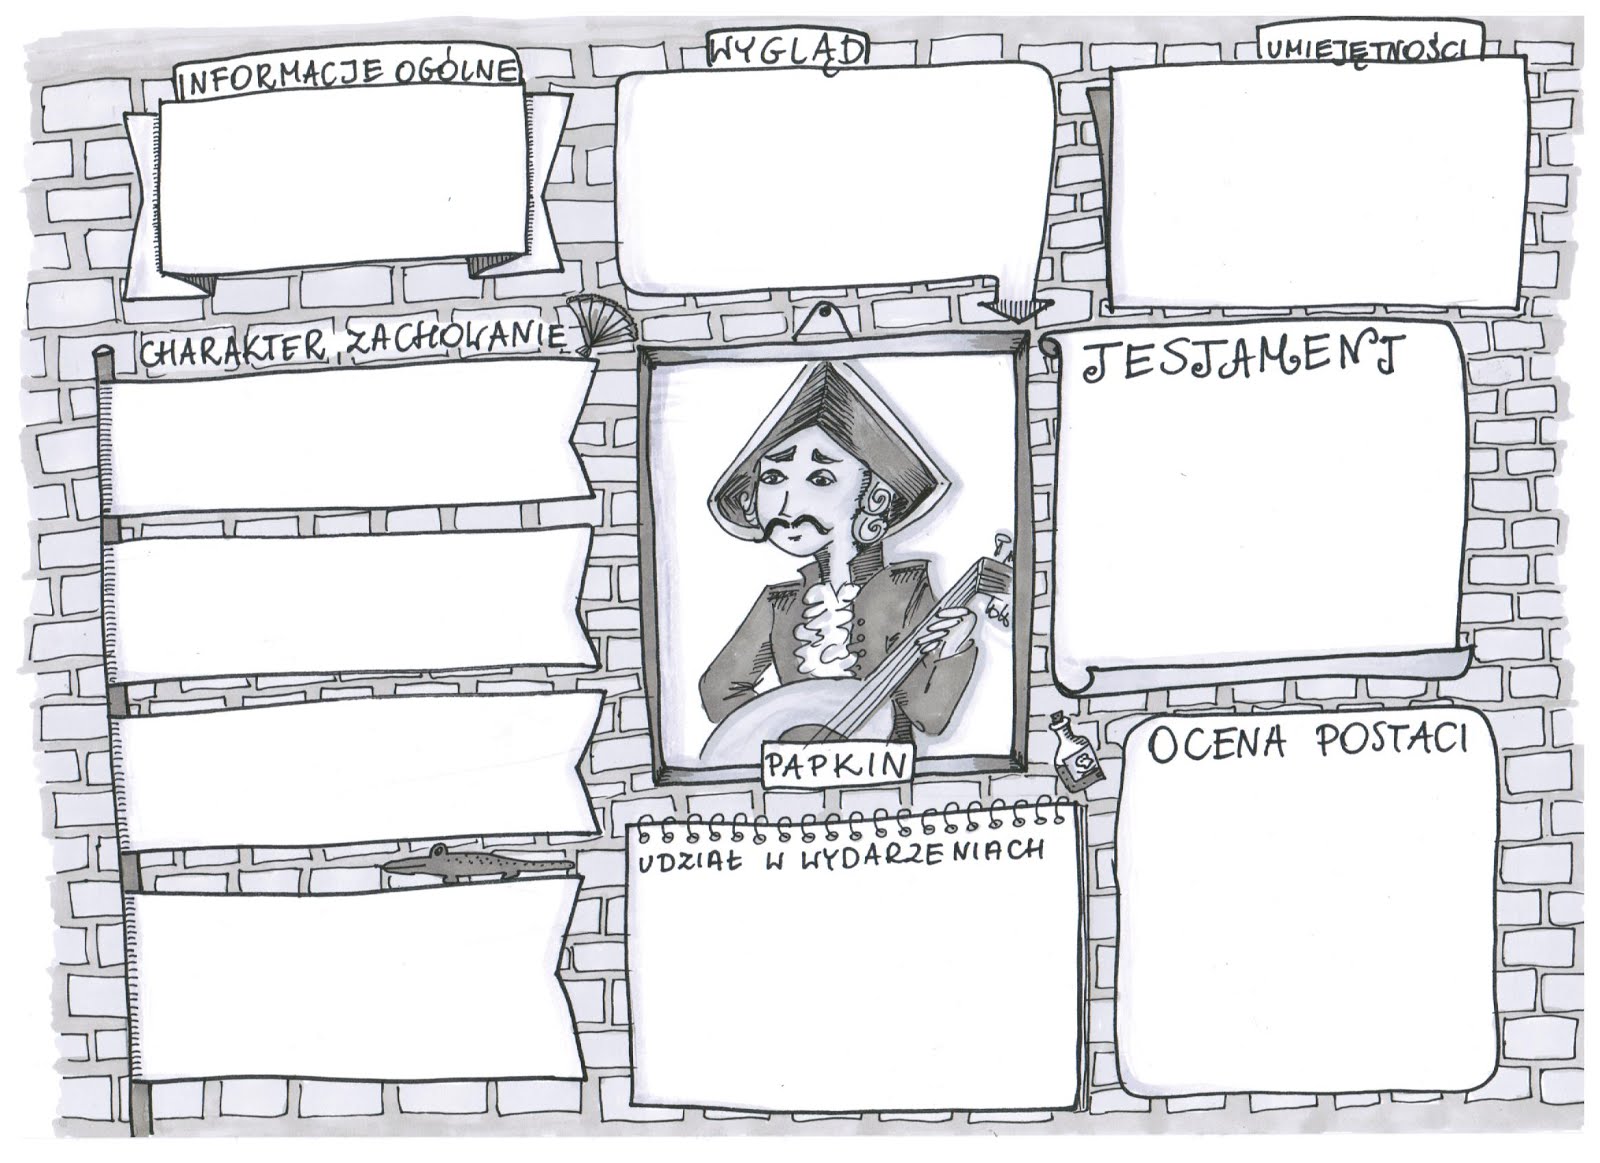 INFORMACJE OGÓLNE
WYGLĄD
UMIEJĘTNOŚCI
CHARAKTER, ZACHOWANIE
TESTAMENT
PAPKIN
OCENA POSTACI
UDZIAŁ W WYDARZENIACH